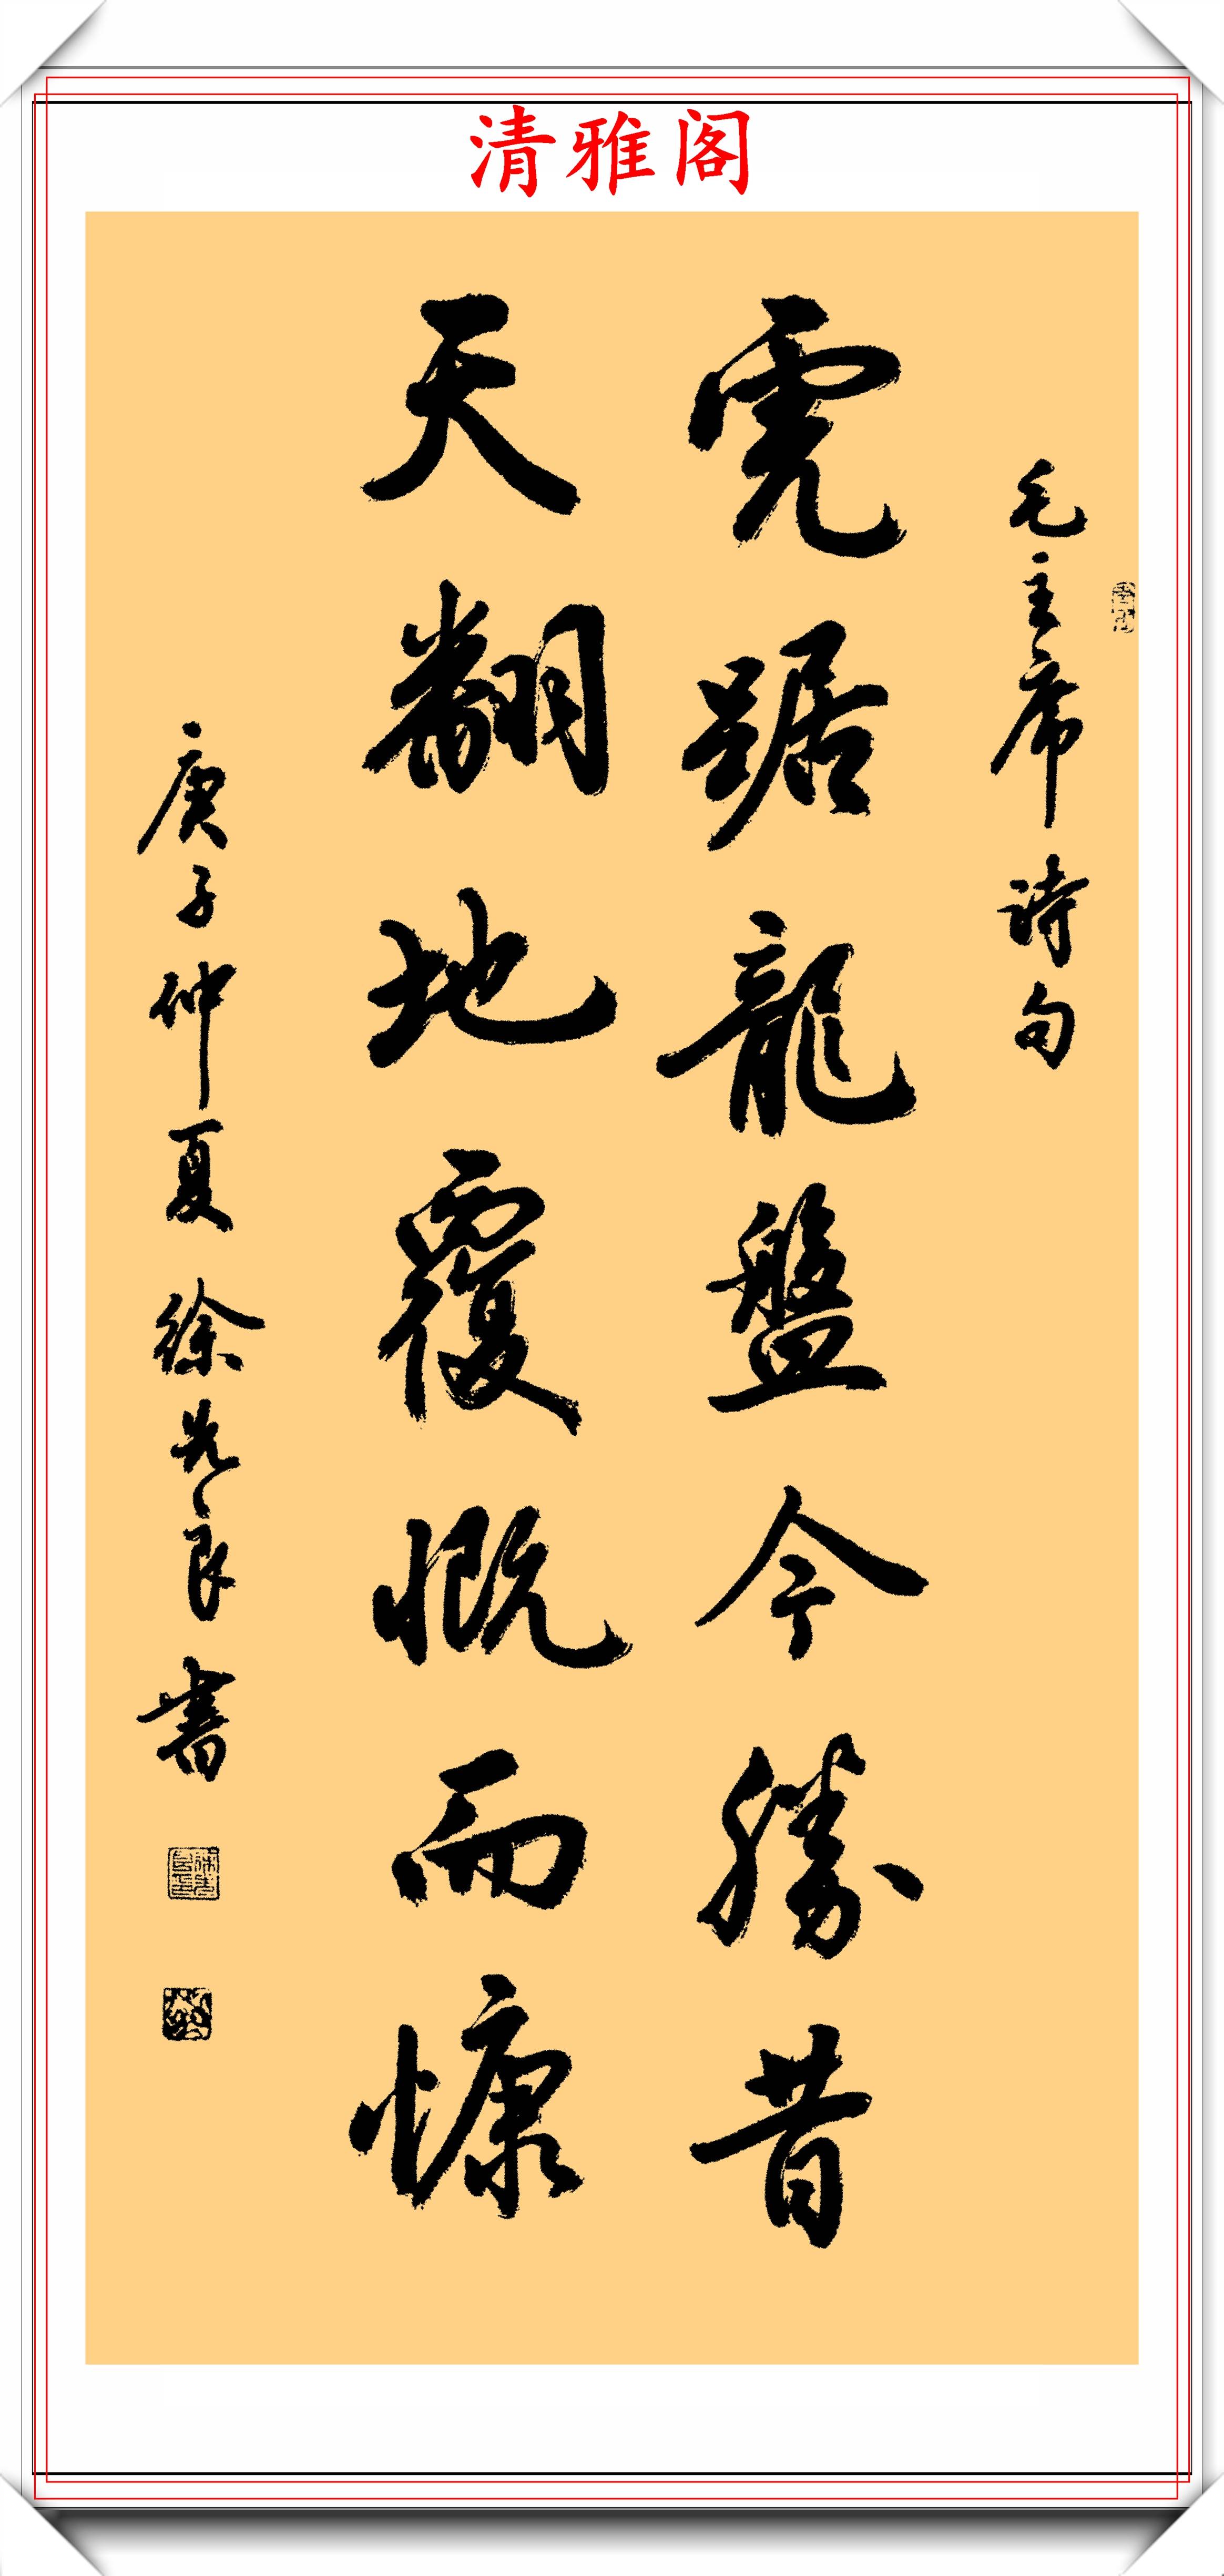 清雅阁
毛主席诗句
虎踞龍盤今勝昔
天翻地覆慨而慷
庚子仲夏徐先良書